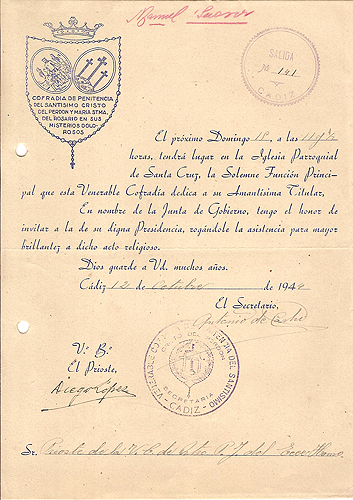 Manuel
SALIDA
Nº 141
CADIZ
COFRADIA DE PENITENCIA
DEL SANTISIMO CRISTO
DEL PERDON Y MARIA STMA.
DEL ROSARIO EN SUS
MISTERIOS DOLO-
ROSOS
El próximo Domingo, a las 11 y ½
horas, tendrá lugar en la Iglesia Parroquial
de Santa Cruz, la Solemne Función Princi-
pal que esta Venerable Cofradía dedica a su Amantísima Titular.
En nombre de la Junta de Gobierno, tengo el honor de
invitar a la de su digna Presidencia, rogándole la asistencia para mayor
brillantez a dicho acto religioso.
Dios guarde a Vd. muchos años.
Cádiz 12 de Octubre de 194
El Secretario,
Antonio de
V.º B.º
El Prioste,
Diego López
SECRETARIA
CADIZ
Sr. Prioste de la V. C. de Ntro P. J. del Ecce Homo